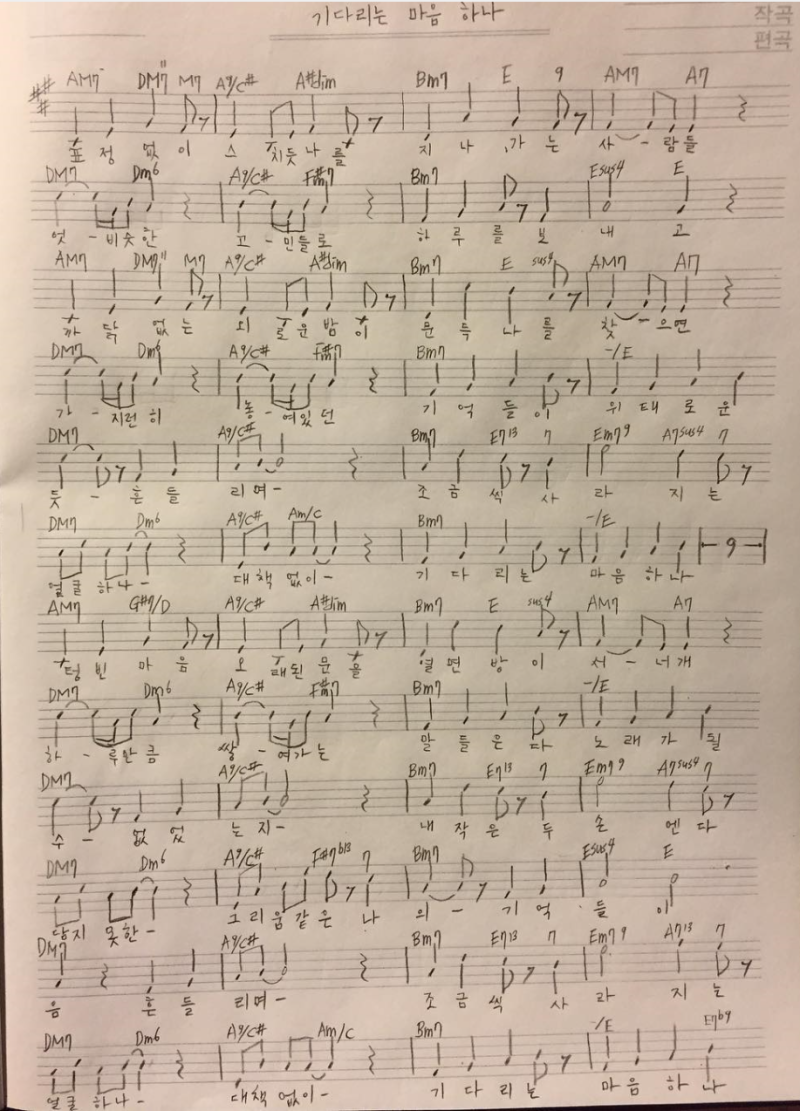 기다리는 마음 하나
작곡
편곡
AM7 DM7 M7 A9/C# A#dim Bm7 E 9 AM7 A7
표 정 없 이 스 치듯 나 를 지 나 가 는 사 - 람들
DM7 Dm6 A9/C# F#7 Bm7 Esus4 E
엇 - 비슷한 고 - 민들로 하 루 를 보 내 고
AM7 DM7 M7 A9/C# A#dim Bm7 E sus4 AM7 A7
까 닭 없 는 외 로운 밤 이 문 득 나 를 찾 - 으면
DM7 Dm6 A9/C# F#7 Bm7 -/E
가 - 지런히 놓 - 여있던 기 억 들 이 위 태 로 운
DM7 A9/C# Bm7 E7 13 7 Em7 9 A7sus4 7
듯 - 흔 들 리며 - 조 금 씩 사 라 지 는
DM7 Dm6 A9/C# Am/C Bm7 -/E
얼굴 하나 - 대책 없이 - 기 다 리 는 마 음 하 나 9
AM7 G#7/D A9/C# A#dim Bm7 E sus4 AM7 A7
텅 빈 마 음 오 래된 문 을 열 면 방 이 서 - 너개
DM7 Dm6 A9/C# F#7 Bm7 -/E
하 - 루만큼 쌓 - 여가는 말 들 은 다 노 래 가 될
DM7 A9/C# Bm7 E7 13 7 Em7 9 A7sus4 7
수 - 없 었 는지 - 내 작 은 두 손 엔 다
DM7 Dm6 A9/C# F#7 b13 7 Bm7 Esus4 E
닿지 못한 - 그리 움같 은 나 의 - 기 억 들 이
DM7 A9/C# Bm7 E7 13 7 Em7 9 A7 13 7
음 흔 들 리며 - 조 금 씩 사 라 지 는
DM7 Dm6 A9/C# Am/C Bm7 -/E E7b9
얼굴 하나 - 대책 없이 - 기 다 리 는 마 음 하 나